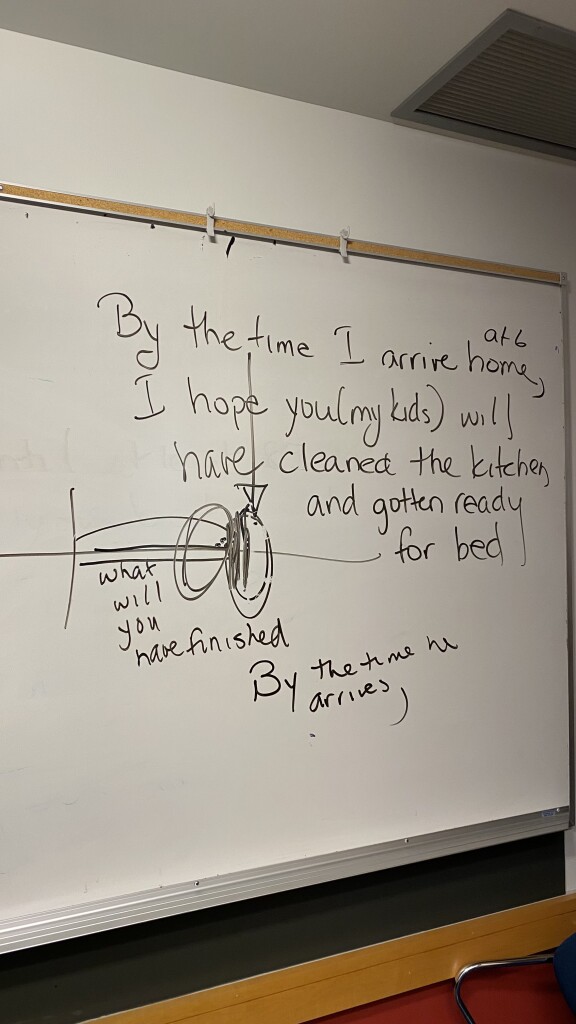 By the time I arrive home, at 6
I hope you (my kids) will
have cleaned the kitchen,
and gotten ready
for bed
what
will
you
have finished
By the time he
arrives,